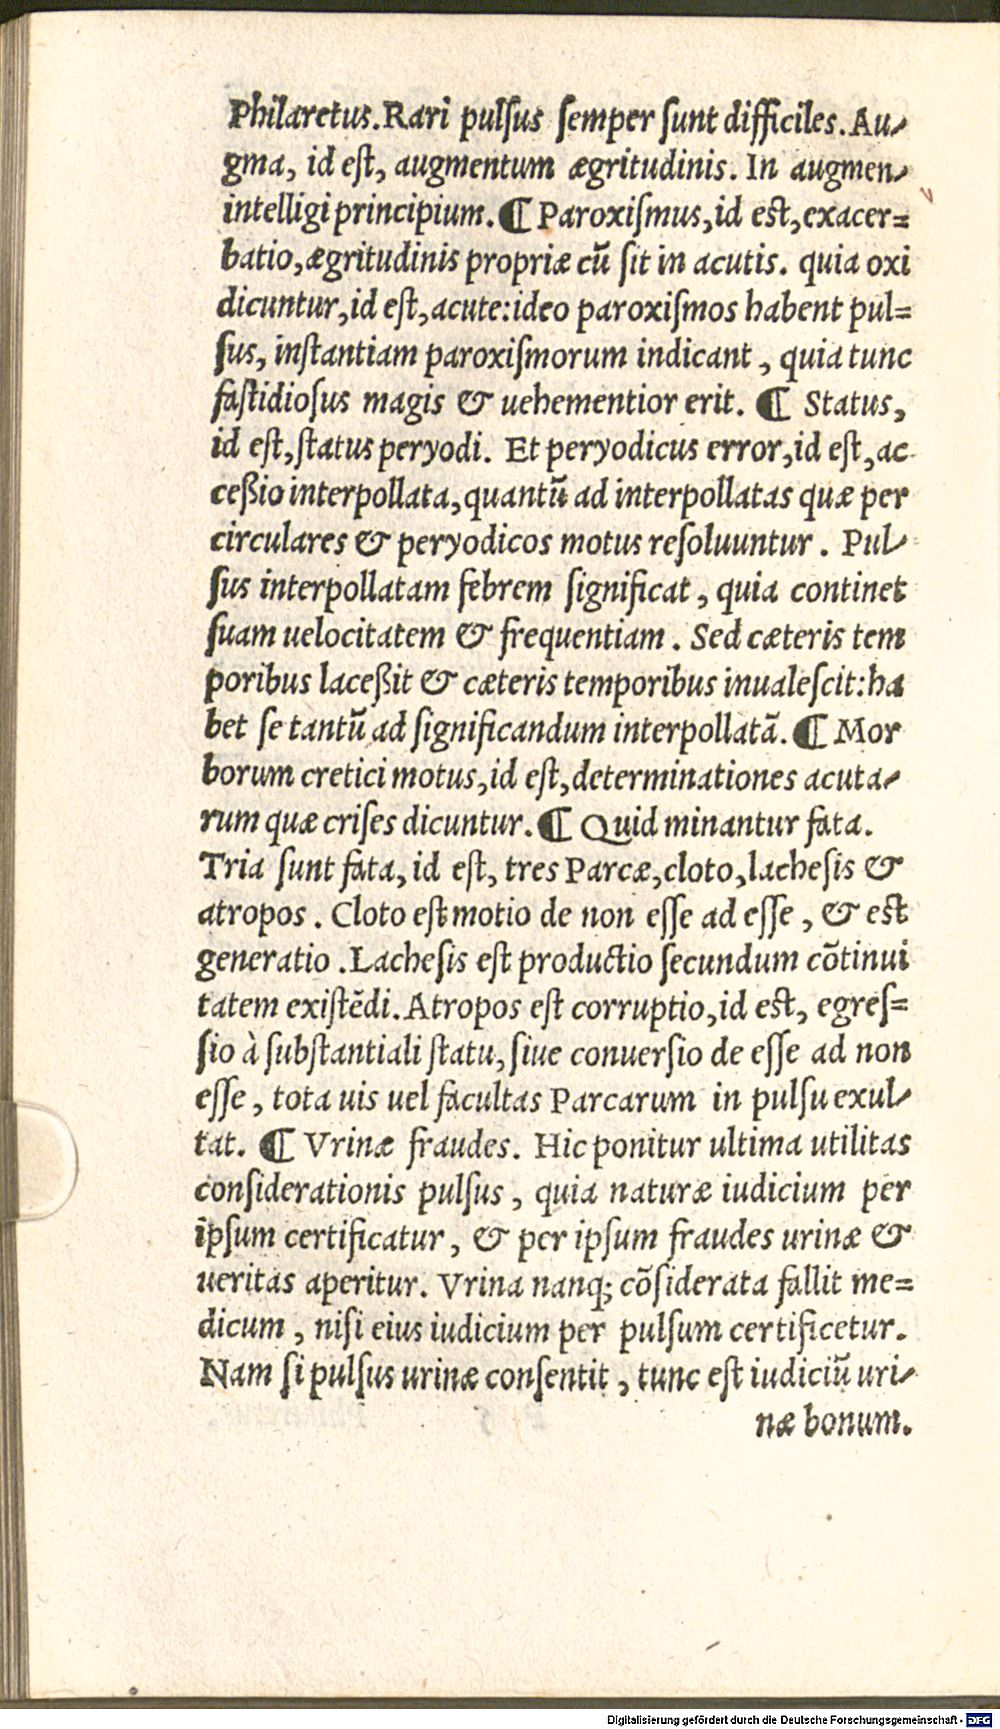 Philaretus. Rari pulſus ſemper ſunt difficiles. Au-
gma, id eſt, augmentum ægritudinis. In augmen-
intelligi principium. ¶ Paroxiſmus, id eſt, exacer=
batio, ægritudinis propriæ cũ ſit in acutis. quia oxi
dicuntur, id eſt, acute: ideo paroxiſmos habent pul=
ſus, inſtantiam paroxiſmorum indicant, quia tunc
faſtidioſus magis & uehementior erit. ¶ Status,
id eſt, ſtatus peryodi. Et peryodicus error, id eſt, ac
ceßio interpollata, quantũ ad interpollatas quæ per
circulares & peryodicos motus reſoluuntur. Pul-
ſus interpollatam febrem ſignificat, quia continet
ſuam uelocitatem & frequentiam. Sed cæteris tem
poribus laceßit & cæteris temporibus inualeſcit: ha
bet ſe tantũ ad ſignificandum interpollatã. ¶ Mor
borum cretici motus, id eſt, determinationes acuta-
rum quæ criſes dicuntur. ¶ Quid minantur fata.
Tria ſunt fata, id eſt, tres Parcæ, cloto, lacheſis &
atropos. Cloto eſt motio de non eſſe ad eſſe, & eſt
generatio. Lacheſis eſt productio ſecundum cõtinui
tatem exiſtẽdi. Atropos eſt corruptio, id eſt, egreſ=
ſio à ſubſtantiali ſtatu, ſiue conuerſio de eſſe ad non
eſſe, tota uis uel facultas Parcarum in pulſu exul-
tat. ¶ Vrinæ fraudes. Hic ponitur ultima utilitas
conſiderationis pulſus, quia naturæ iudicium per
ipſum certificatur, & per ipſum fraudes urinæ &
ueritas aperitur. Vrina nanq; cõſiderata fallit me=
dicum, niſi eius iudicium per pulſum certificetur.
Nam ſi pulſus urinæ conſentit, tunc eſt iudiciũ uri-
næ bonum.
Digitalisierung gefördert durch die Deutsche Forschungsgemeinschaft - DFG